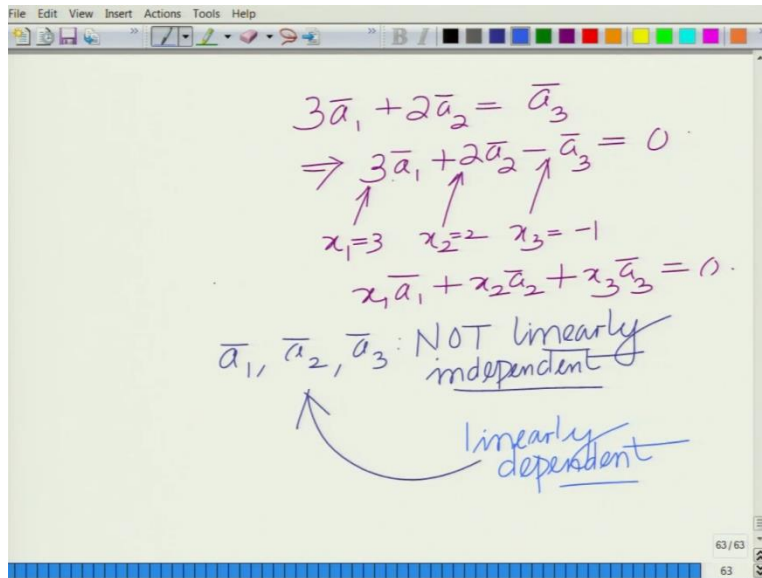 File Edit View Insert Actions Tools Help
B I
3ā₁ + 2ā₂ = ā₃
⇒ 3ā₁ + 2ā₂ - ā₃ = 0
x₁=3 x₂=2 x₃=-1
x₁ā₁ + x₂ā₂ + x₃ā₃ = 0.
ā₁, ā₂, ā₃ : NOT linearly
independent
linearly
dependent
63/63
63